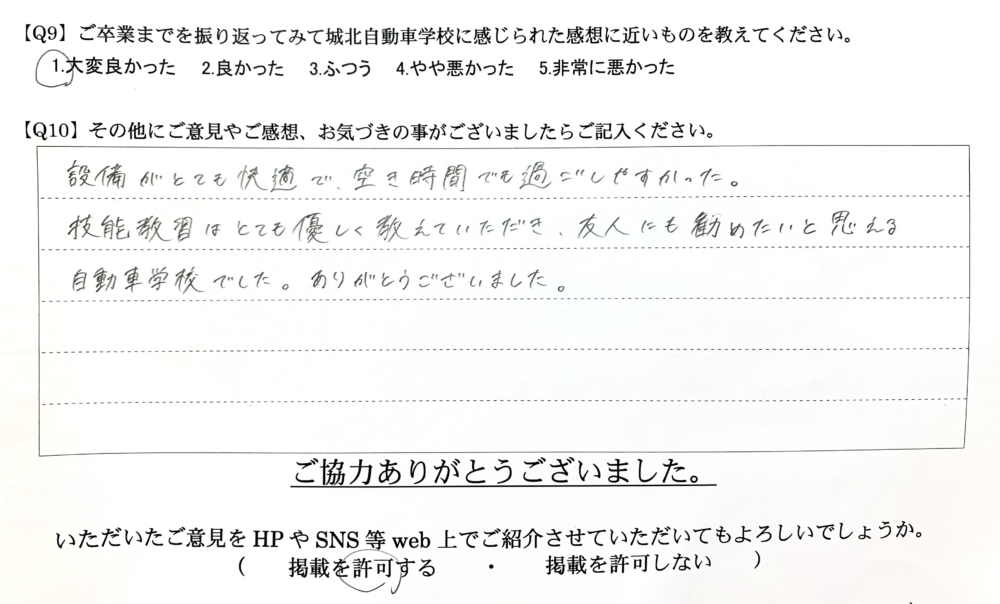 【Q9】ご卒業までを振り返ってみて城北自動車学校に感じられた感想に近いものを教えてください。
1.大変良かった 2.良かった 3.ふつう 4.やや悪かった 5.非常に悪かった
【Q10】その他にご意見やご感想、お気づきの事がございましたらご記入ください。
設備がとても快適で、空き時間でも過ごしやすかった。
技能教習はとても優しく教えていただき、友人にも勧めたいと思える
自動車学校でした。ありがとうございました。
ご協力ありがとうございました。
いただいたご意見をHPやSNS等web上でご紹介させていただいてもよろしいでしょうか。
( 掲載を許可する ・ 掲載を許可しない )